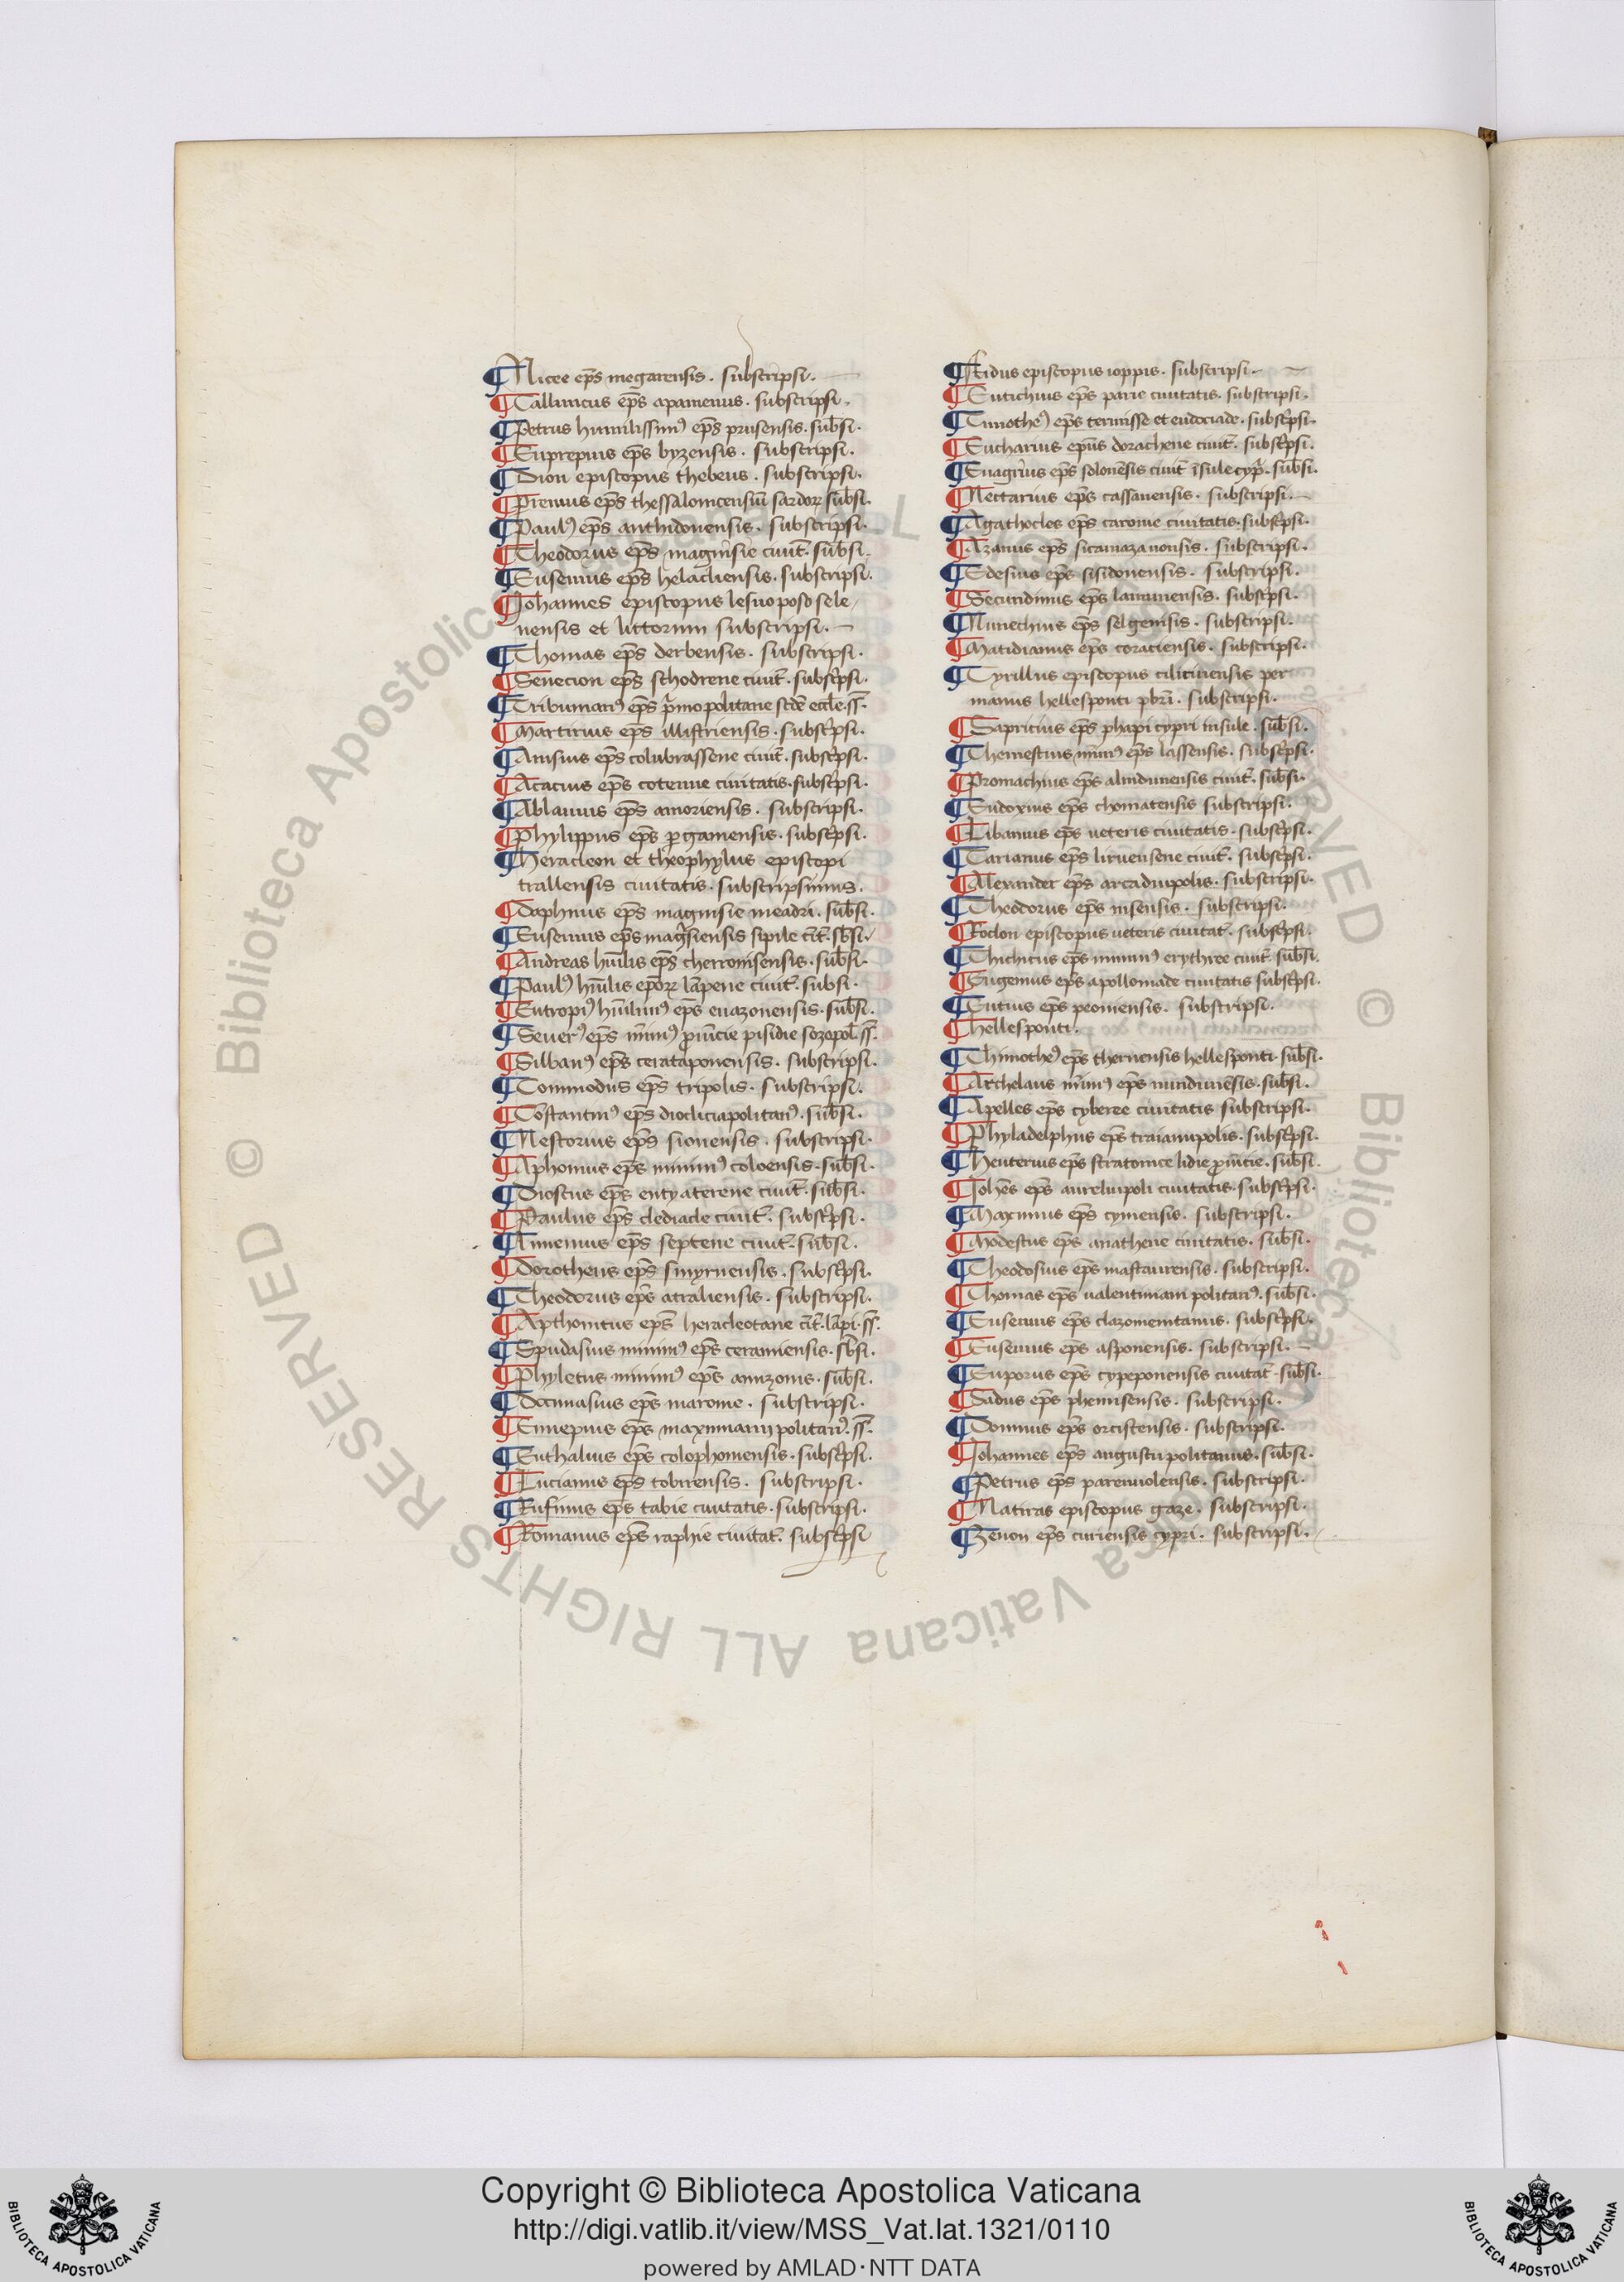 ¶ Nicee ep̄s megarensis. subscripsi.
¶ Callinicus ep̄s apamenus. subscripsi.
¶ Petrus humilissimꝰ ep̄s prusensis. sub̄si.
¶ Euprepius ep̄s byzensis. subscripsi.
¶ Dion episcopus thebeus. subscripsi.
¶ Pirenus ep̄s thessalonicensiū sardoꝝ sub̄si.
¶ Paulꝰ ep̄s anthidonensis. subscripsi.
¶ Theodorus ep̄s magnisie ciuit̄. sub̄si.
¶ Eusenius ep̄s helacliensis. subscripsi.
¶ Iohannes episcopus lesuo poso sele
nensis et littorum subscripsi.
¶ Thomas ep̄s derbensis. subscripsi.
¶ Senecion ep̄s schodrene ciuit̄. subsc̄psi.
¶ Tribunianꝰ ep̄s p̄mopolitane sc̄de eccl̄e. ss̄.
¶ Martirius ep̄s illistriensis. subsc̄psi.
¶ Anisius ep̄s colubrassene ciuit̄. subsc̄psi.
¶ Acacius ep̄s cotenne ciuitatis. subsc̄psi.
¶ Ablauius ep̄s amoriensis. subscripsi.
¶ Phylippus ep̄s ꝑgamensis. subsc̄psi.
¶ Heracleon et theophylus episcopi
trallensis ciuitatis. subscripsimus.
¶ Daphnus ep̄s magnisie meadri. sub̄si.
¶ Eusenius ep̄s maḡsiensis sipile c̄it̄. sb̄si.
¶ Andreas hūilis ep̄s cherronisensis. sub̄si.
¶ Paulꝰ hūilis ep̄oꝝ lāpene ciuit̄. subsi.
¶ Eutropiꝰ hūilimꝰ ep̄s euazonensis. sub̄si.
¶ Seuerꝰ ep̄s mīimꝰ ꝓuīcie pisidie sozopol̄. ss̄.
¶ Silbanꝰ ep̄s cerataponensis. subscripsi.
¶ Commodus ep̄s tripolis. subscripsi.
¶ Cōstantinꝰ ep̄s diocliciapolitanꝰ. sub̄si.
¶ Nestorius ep̄s sionensis. subscripsi.
¶ Aphonius ep̄s minimꝰ coloensis. sub̄si.
¶ Dioscus ep̄s entyaterene ciuit̄. sub̄si.
¶ Paulus ep̄s dediacle ciuit̄. subsc̄psi.
¶ Limenius ep̄s septene ciuit̄. sub̄si.
¶ Dorotheus ep̄s smyrnensis. subsc̄psi.
¶ Theodorus ep̄s atraliensis. subscripsi.
¶ Apthonitus ep̄s heracleotane c̄it̄. lāpi. ss̄.
¶ Spudasius minimꝰ ep̄s ceramiensis. sb̄si.
¶ Phyletus minimꝰ ep̄s amizonis. sub̄si.
¶ Docimasius ep̄s marome. subscripsi.
¶ Ennepius ep̄s maximianipolitanꝰ. ss̄.
¶ Euthalius ep̄s colophomensis. subsc̄psi.
¶ Lucianus ep̄s tobirensis. subscripsi.
¶ Rufinus ep̄s tabie ciuitatis. subscripsi.
¶ Romanus ep̄s raphie ciuitat̄. subsc̄psi
¶ Fidus episcopus ioppis. subscripsi.
¶ Eutichius ep̄s parie ciuitatis. subscripsi.
¶ Timotheꝰ ep̄s termisse et eudociade. subsc̄psi.
¶ Eucharius ep̄us dorachene ciuit̄. subsc̄psi.
¶ Euagrius ep̄s solonēsis ciuit̄ īsule cyp̄. sub̄si.
¶ Nectarius ep̄s cassanensis. subscripsi.
¶ Agathocles ep̄s carome ciuitatis. subsc̄psi.
¶ Azanus ep̄s sicamazanonsis. subscripsi.
¶ Edesius ep̄s sisidonensis. subscripsi.
¶ Secundinus ep̄s lamunensis. subsc̄psi.
¶ Nunechius ep̄s selgensis. subscripsi.
¶ Matidianus ep̄s coraciensis. subscripsi.
¶ Cyrillus episcopus ciliciniensis per
manus hellesponti p̄bri. subscripsi.
¶ Sapricius ep̄s phapi cypri insule. sub̄si.
¶ Themestius mīimꝰ ep̄s lassensis. subsc̄psi.
¶ Promachius ep̄s alindunensis ciuit̄. sub̄si.
¶ Eudoxius ep̄s chomatensis subscripsi.
¶ Libanius ep̄s ueteris ciuitatis. subsc̄psi.
¶ Tarianus ep̄s liruensene ciuit̄. subsc̄psi.
¶ Alexander ep̄s arcadiupolis. subscripsi.
¶ Theodorus ep̄s nisensis. subscripsi.
¶ Rodon episcopus ueteris ciuitat̄. subsc̄psi.
¶ Thichicus ep̄s minimꝰ erythree ciuit̄. sub̄si.
¶ Eugenius ep̄s apolloniade ciuitatis subsc̄psi.
¶ Entius ep̄s peoniensis. subscripsi.
¶ Hellesponti.
¶ Thimotheꝰ ep̄s thernensis hellesponti. sub̄si.
¶ Archelaus mīimꝰ ep̄s mindinēsis. sub̄si.
¶ Apelles ep̄s cyberee ciuitatis subscripsi.
¶ Phyladelphus ep̄s traianupolis. subsc̄psi.
¶ Heuterius ep̄s stratonice lidie ꝓuīcie. sub̄si.
¶ Iohēs ep̄s aureliupoli ciuitatis. subsc̄psi.
¶ Maximus ep̄s cymensis. subscripsi.
¶ Modestus ep̄s anathene ciuitatis. sub̄si.
¶ Theodosius ep̄s mastaurensis. subscripsi.
¶ Thomas ep̄s ualentinianipolitanꝰ. sub̄si.
¶ Eusenius ep̄s clazomenitanus. subsc̄psi.
¶ Eusenius ep̄s asponensis. subscripsi.
¶ Euporus ep̄s cypeponensis ciuitat̄. sub̄si.
¶ Dadus ep̄s phenisensis. subscripsi.
¶ Domnus ep̄s orcistensis. subscripsi.
¶ Iohannes ep̄s augustupolitanus. sub̄si.
¶ Petrus ep̄s paremuolensis. subscripsi.
¶ Natiras episcopus gaze. subscripsi.
¶ Zenon ep̄s curiensis cypri. subscripsi.
Copyright © Biblioteca Apostolica Vaticana
http://digi.vatlib.it/view/MSS_Vat.lat.1321/0110
powered by AMLAD·NTT DATA